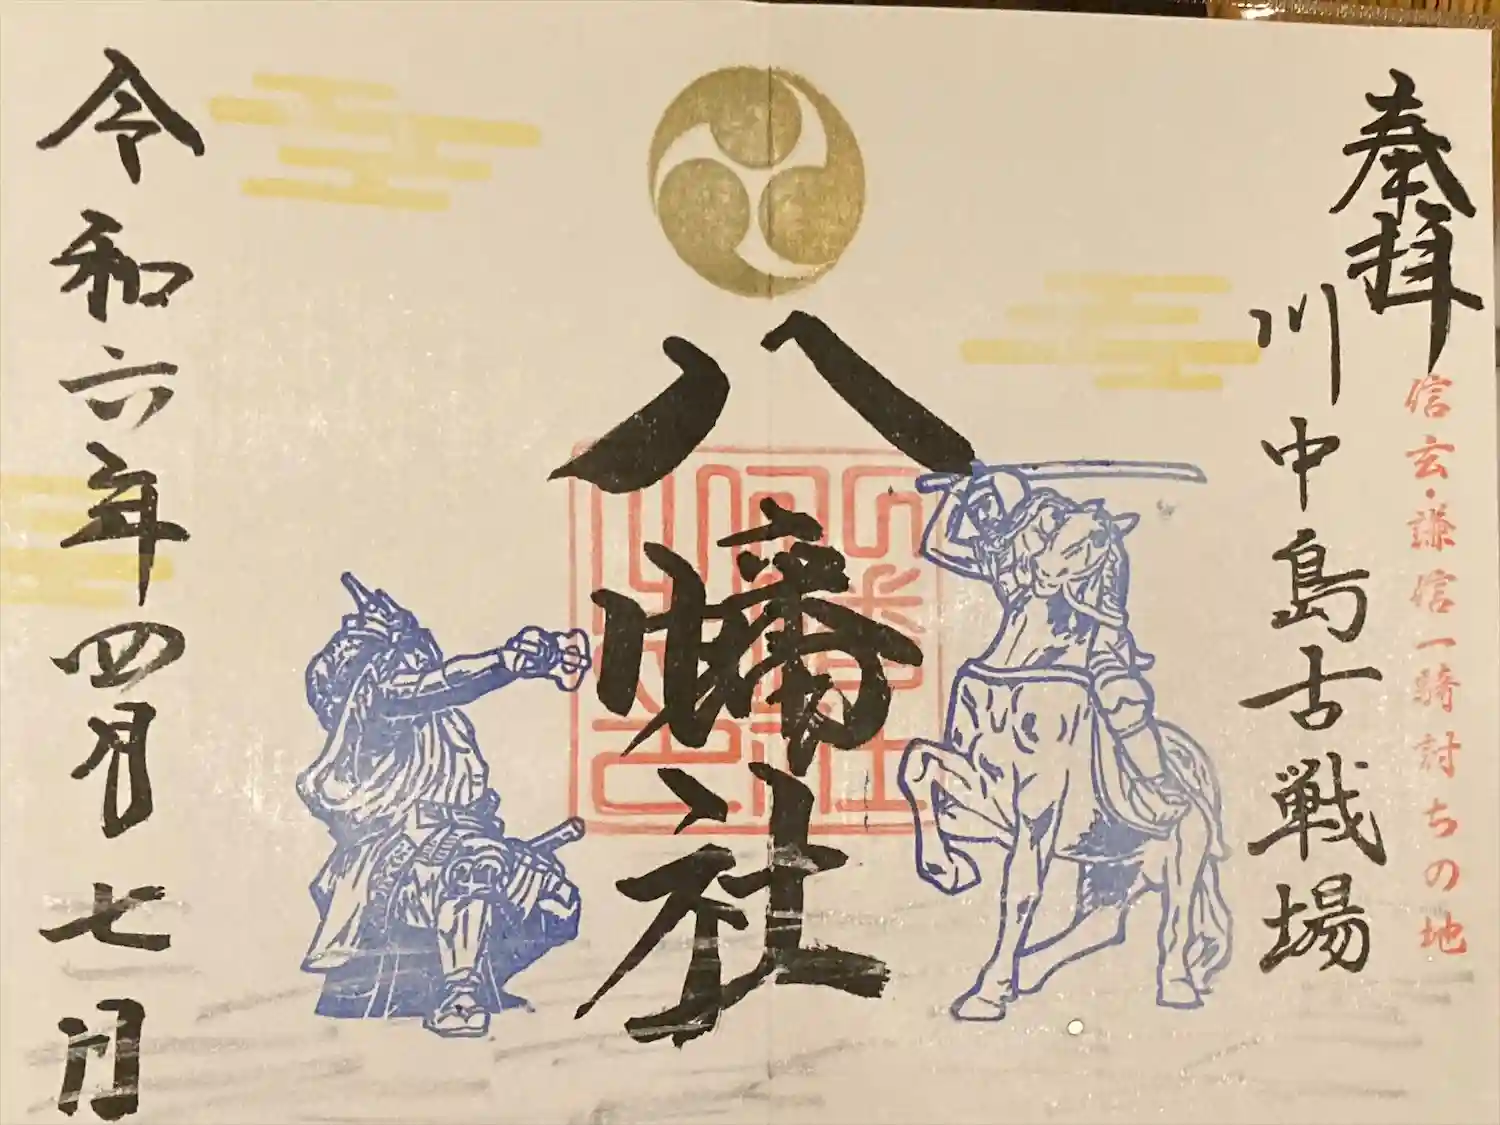 奉拝
信玄・謙信一騎討ちの地
川中島古戦場
八幡社
令和六年四月七日